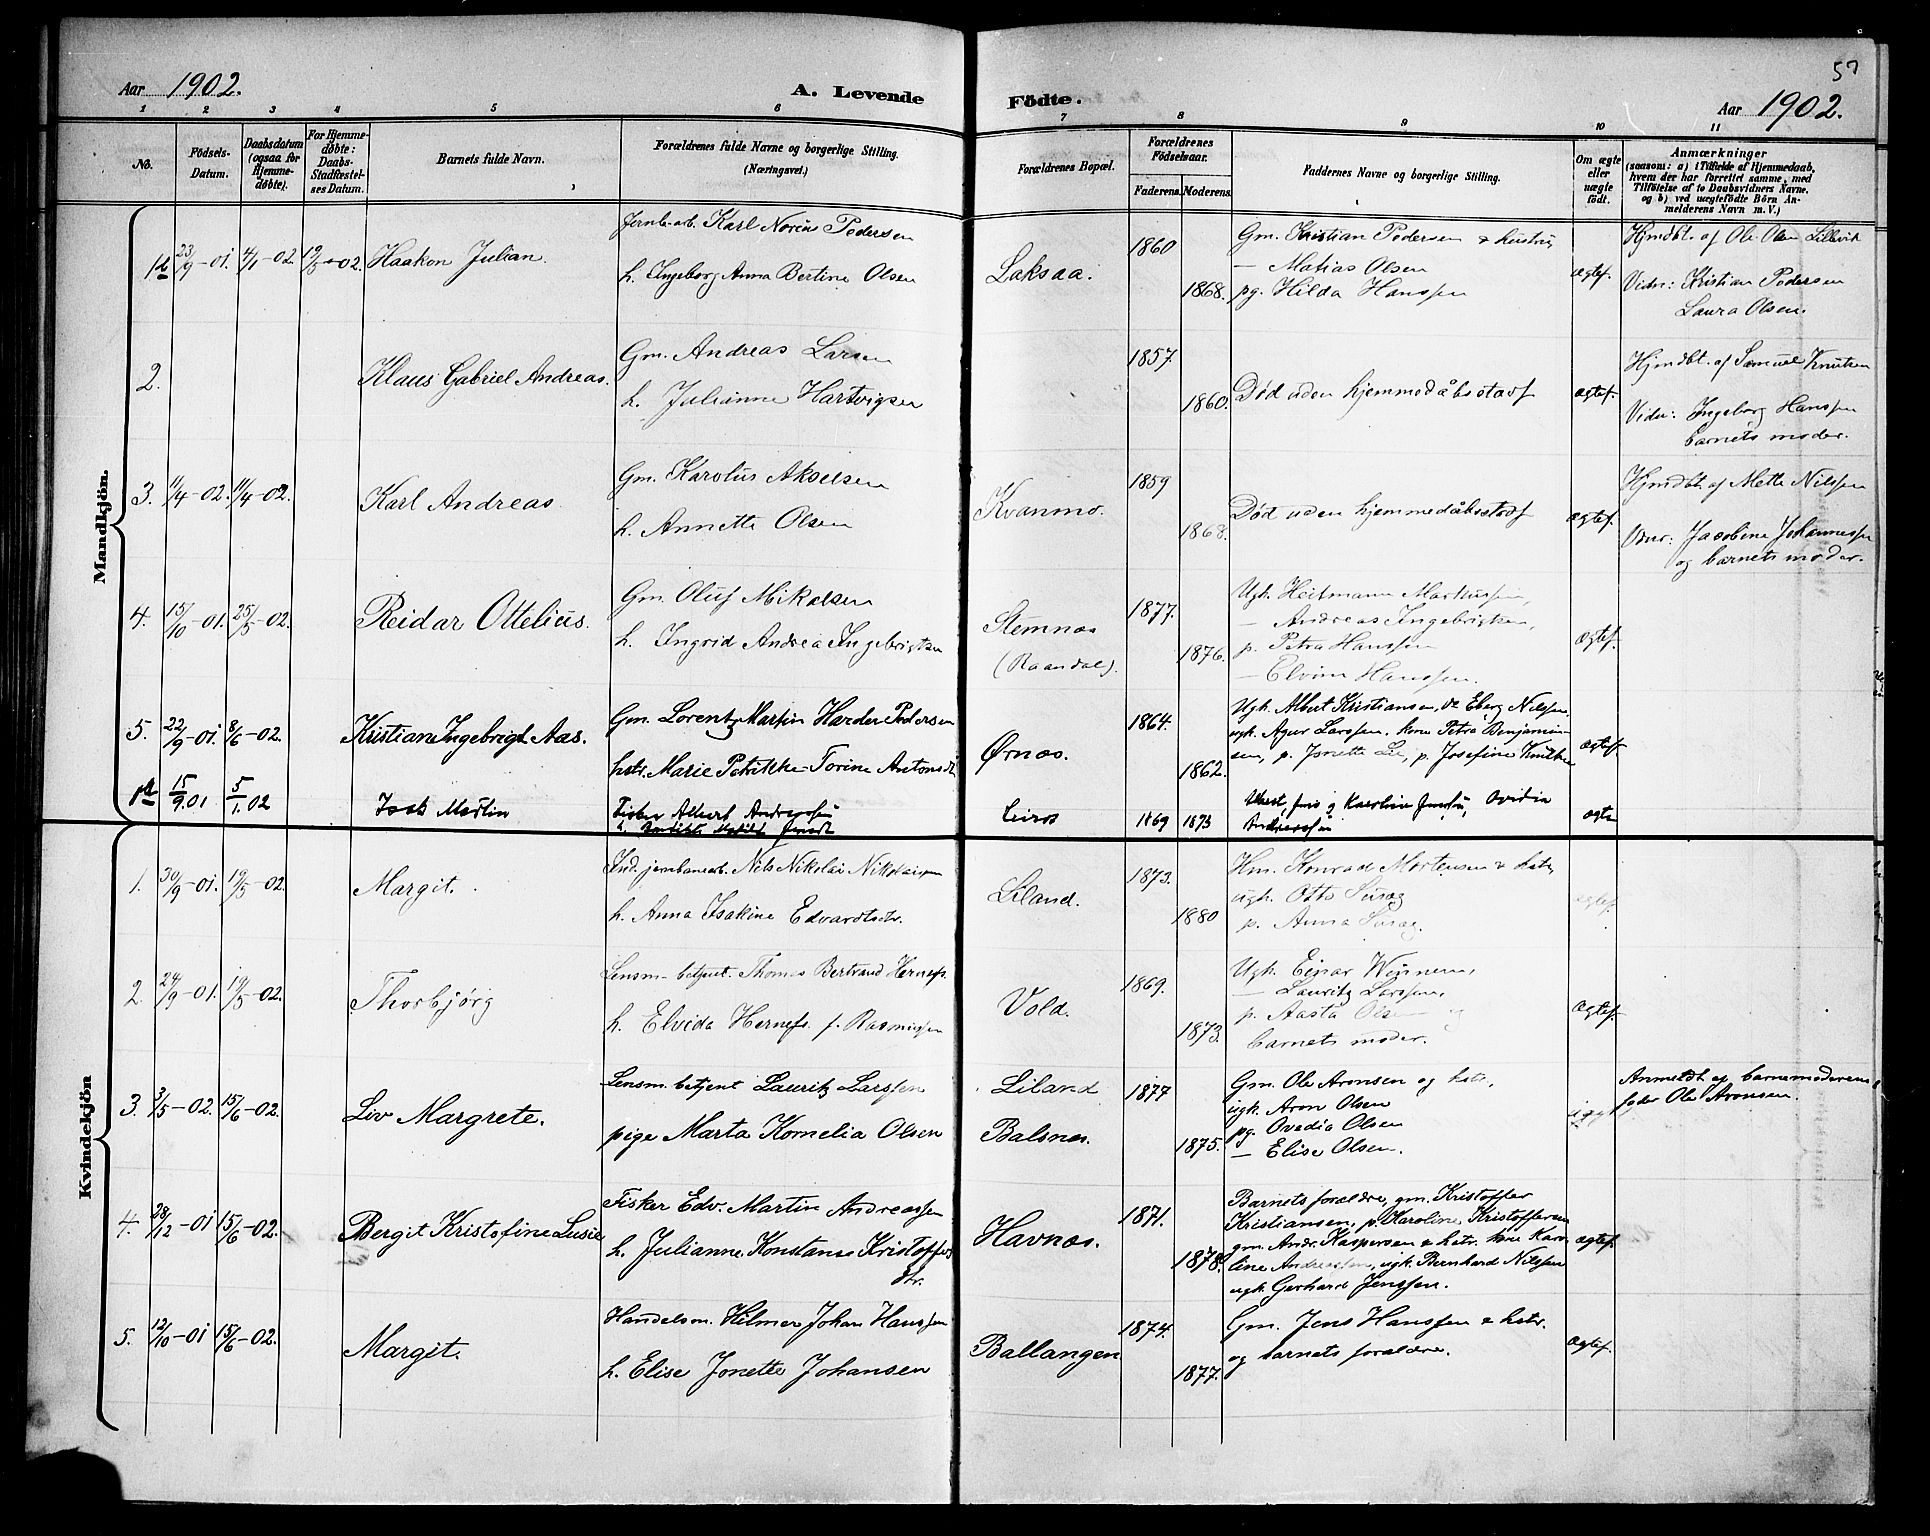 57
Aar 1902.
A. Levende Födte.
Aar 1902.
1 2 3 4 5 6 7 8 9 10 11
No.
Födsels-Datum.
Daabsdatum (ogsaa for Hjemme-döbte).
For Hjemme-döbte: Daabs-Stadfæstel-ses Datum.
Barnets fulde Navn.
Forældrenes fulde Navne og borgerlige Stilling. (Næringsvei.)
Forældrenes Bopæl.
Forældrenes Födselsaar.
Faderens. Moderens.
Faddernes Navne og borgerlige Stilling.
Om ægte eller uægte født.
Anmærkninger
(saasom: a) i Tilfælde af Hjemmedaab,
hvem der har forrettet samme, med
Tilföielse af to Daabsvidners Navne,
og b) ved uægtefödte Börn An-
melderens Navn m. V.)
Mandkjön.
23/9-01. 4/1-02 19/5-02. Haakon Julian.
Jernb-arb. Karl Norius Pedersen
h. Ingeborg Anna Bertine Olsen
Laksaa.
1860
1868.
Gm. Kristian Pedersen & hustru,
— Matias Olsen
pg. Hilda Hanssen
ægtef.
Hjmdbt. af Ole Olsen Lillevik
Vidn: Kristian Pedersen
Laura Olsen.
2. Klaus Gabriel Andreas.
Gm. Andreas Larsen
h. Julianne Hartvigsen
1857.
1860.
Død uden hjemmedåbsstadf
ægtef.
Hjmdbt. af Samuel Knutsen
Vidn: Ingeborg Hanssen
barnets moder.
3. 11/4-02. 11/4-02. Karl Andreas
Gm. Karolus Akselsen
h. Annette Olsen
Kvanmo.
1859
1868.
Død uden hjemmedåbsstadf
ægtef.
Hjmdbt. af Mette Nilssen
Vidnr: Jacobine Johannessen
og barnets moder.
4. 15/10-01. 25/5-02. Reidar Ottelius.
Gm. Oluf Mikalsen
h. Ingrid Andrea Ingebrigtsen
Stemnæs
(Raandal).
1877.
1876.
Ugk. Heitmann Markussen,
— Andreas Ingebrigtsen,
p. Petra Hanssen
— Elvine Hanssen.
ægtef.
5. 22/9-01. 8/6-02. Kristian Ingebrigt Aas.
Gm. Lorentz Martin Harder Pedersen
hstr. Marie Petrikke Torine Antonsd
Ørnæs.
1864.
1862.
Ugk. Albert Kristiansen, do Eberg Nilssen,
ugk. Agur Larssen, kone Petra Benjamin-
sen, p. Jonette Li, p. Josefine Knutsen
ægtef.
15/9.01 5/1.02 Isak Martin
Fisker Albert Andreassen
Leiros
1869 1873
Andreassen
ægte
Kvindekjön
1. 30/9-01. 19/5-02. Margit.
Ind. jernbanearb. Nils Nikolai Nikolaisen
h. Anna Isakine Edvardtsdtr.
Liland.
1873.
1880
Hm. Konrad Mortensen & hstr,
ugk. Otto
p. Anna
ægtef.
2. 24/9-01. 19/5-02. Thorbjørg
Lensm-betjent. Thomas Bertrand Hernes.
h. Elvida Hernes f. Rasmussen
Vold.
1869.
1873.
Ugk. Einar Winnem,
— Lauritz Larssen,
p. Aasta Olsen og
barnets moder.
ægtef.
3. 3/5-02. 15/6-02. Liv Margrete.
Lensm. betjent Lauritz Larssen
pige Marta Kornelia Olsen
Liland
Balsnes.
1877
1875.
Gm. Ole Aronsen og hstr,
ugk. Aron Olsen
pg. Ovedia Olsen
— Elise Olsen.
Anmeldt af barnemoderens
fader Ole Aronsen.
4. 28/12-01 15/6-02. Bergit Kristofine Lusie
Fisker Edv. Martin Andreassen
h. Julianne Konstanse Kristoffers
dtr.
Havnæs.
1871.
1878.
Barnets forældre, gm. Kristoffer
Kristiansen, p. Karoline Kristoffersen
gm. Andr. Kaspersen & hstr. kone Karo-
line Andreassen, ugk. Bernhard Nilssen
ugk. Gerhard Jenssen.
ægtef.
5. 12/10-01 15/6-02. Margit.
Handelsm. Hilmer Johan Hanssen
h. Elise Jonette Johansen
Ballangen
1874.
1877.
Gm. Jens Hanssen & hstr.
og barnets forældre.
ægtef.